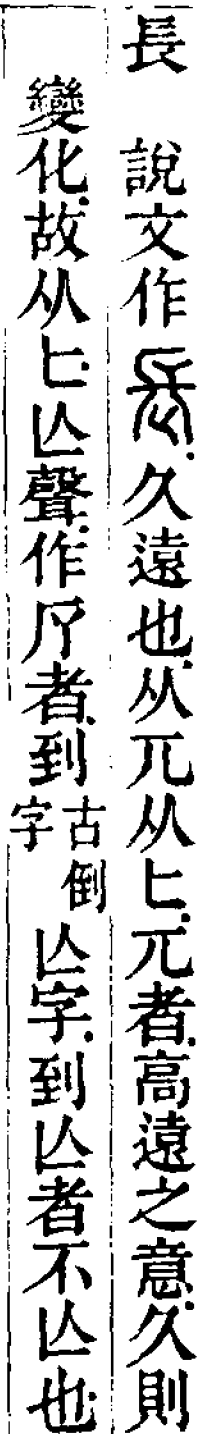 長　說文作𨱗久遠也从兀从匕兀者高遠之意久則
變化故从匕亾聲作𠂆者到古倒字亾字到亾者不亾也